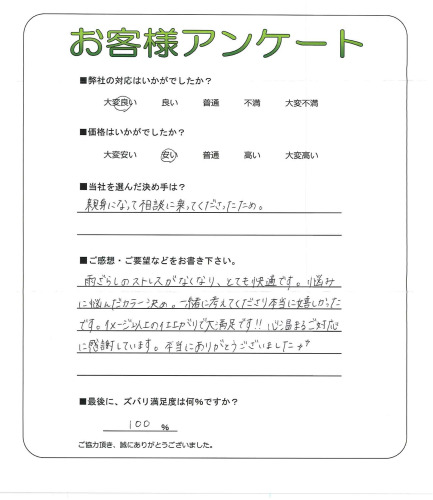 お客様アンケート
■弊社の対応はいかがでしたか?
大変良い 良い 普通 不満 大変不満
■価格はいかがでしたか?
大変安い 安い 普通 高い 大変高い
■当社を選んだ決め手は?
親身になって相談に乗ってくださったため。
■ご感想・ご要望などをお書き下さい。
雨ざらしのストレスがなくなり、とても快適です。悩み
に悩んだカラー決め。一緒に考えてくださり本当に嬉しかった
です。イメージ以上の仕上がりで大満足です!! 心温まるご対応
に感謝しています。本当にありがとうございました
■最後に、ズバリ満足度は何%ですか?
100 %
ご協力頂き、誠にありがとうございました。